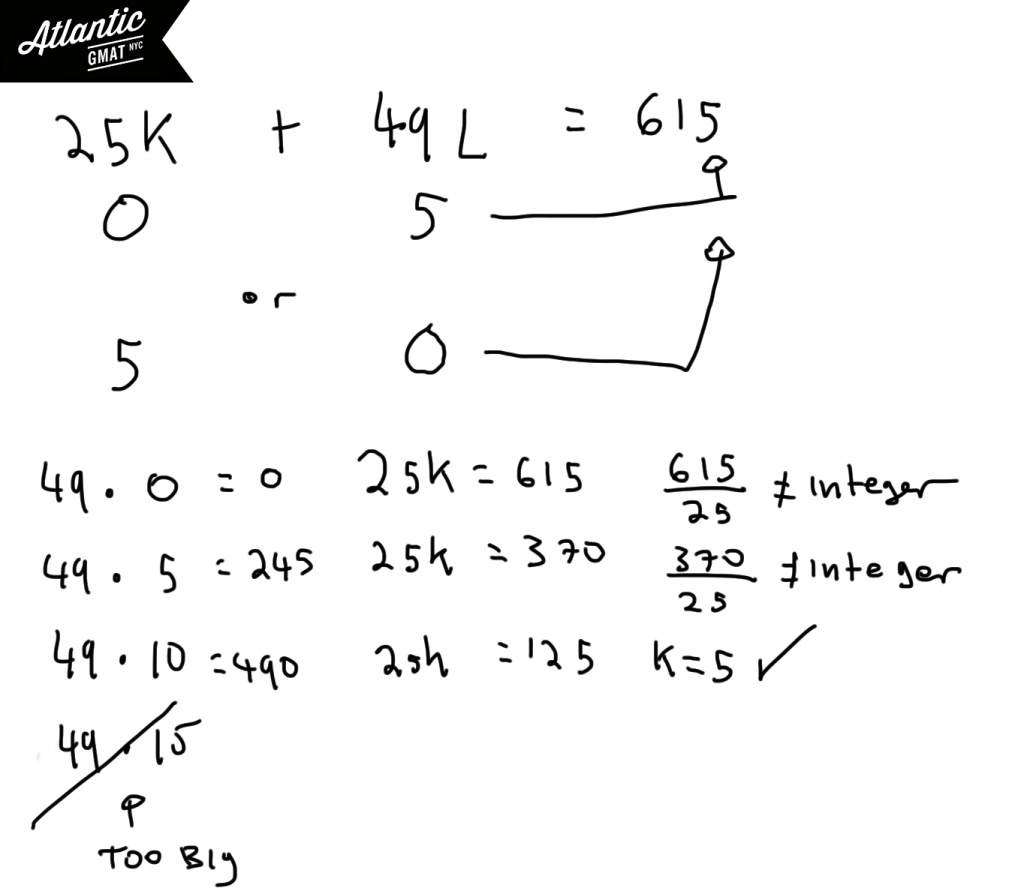 Atlantic
GMAT NYC
25K + 49L = 615
0 5
or
5 0
49 · 0 = 0 25K = 615 615/25 ≠ Integer
49 · 5 = 245 25k = 370 370/25 ≠ Integer
49 · 10 = 490 25k = 125 K = 5 ✓
49 · 15
Too Big